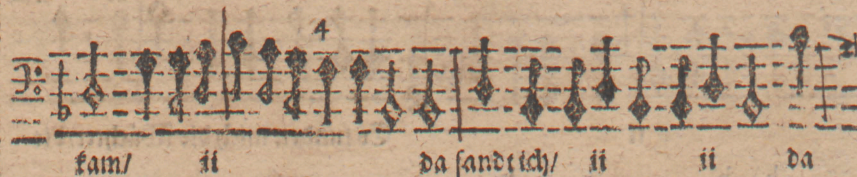 4
kam/ ii da ſandt ich/ ii ii da